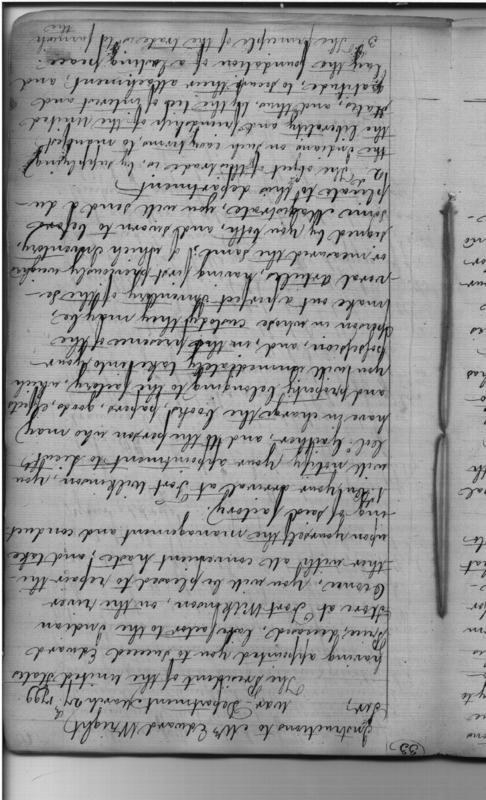 (33)
Instructions to Mr. Edward Wright
War Department March 27th 1799
Sir,
The President of the United States
having appointed you to succeed Edward
Price, deceased, late factor to the Indian
Store at Fort Wilkinson on the river
Oconee, you will be pleased to repair thi-
ther with all convenient haste; and take
upon yourself the management and conduct
ing of said factory.
1. Upon your arrival at Fort Wilkinson, you
will notify, your appointment to Lieutt
Coll Gaither, and to the person who may
have in charge the books, papers, goods, effects
and property belonging to the factory, which
you will immediately take into your
possession, and, in the presence of the
person in whose custody they may be,
make out a perfect Inventory of the se-
veral articles, having first previously weighed
or measured the same; of which Inventory,
signed by you both, and sworn to before
some Magistrate, you will send a du-
plicate to this department.
2d. The object of this trade is, by supplying
the Indians on such easy terms, to manifest
the liberality and friendship of the United
States, and thus, by the ties of interest and
gratitude, to secure their attachment, and,
lay the foundation of a lasting peace.
3. The principle of the trade is to furnish
the